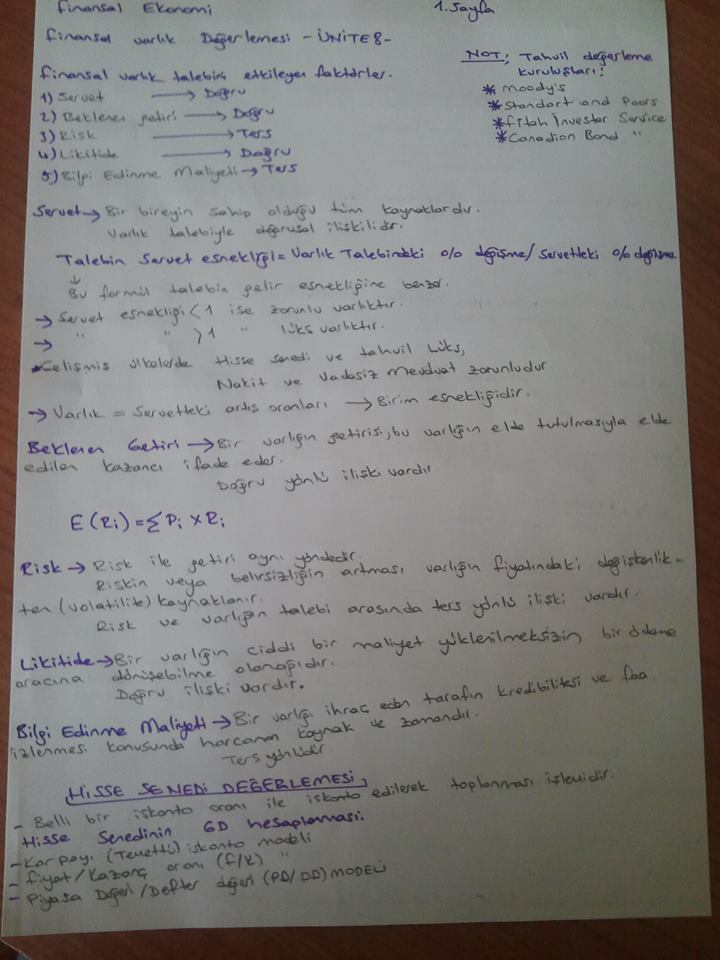 Finansal Ekonomi
1. Sayfa
Finansal varlık Değerlemesi - ÜNİTE 8 -
NOT; Tahvil değerleme
kuruluşları:
* Moody's
* Standart and Poors
* Fitch İnvestor Service
* Canadian Bond "
Finansal varlık talebini etkileyen faktörler.
1) Servet → Doğru
2) Beklenen getiri → Doğru
3) Risk → Ters
4) Likitide → Doğru
5) Bilgi Edinme Maliyeti → Ters
Servet → Bir bireyin sahip olduğu tüm kaynaklardır.
Varlık talebiyle doğrusal ilişkilidir.
Talebin Servet esnekliği = Varlık Talebindeki % değişme / servetteki % değişme
↓
Bu formül talebin gelir esnekliğine benzer.
→ Servet esnekliği < 1 ise zorunlu varlıktır.
→ " " > 1 " lüks varlıktır.
* Gelişmiş ülkelerde Hisse senedi ve tahvil Lüks,
Nakit ve Vadesiz Mevduat zorunludur
→ Varlık = Servetteki artış oranları → Birim esnekliğidir.
Beklenen Getiri → Bir varlığın getirisi, bu varlığın elde tutulmasıyla elde
edilen kazancı ifade eder.
Doğru yönlü ilişki vardır
E (Ri) = Σ Pi x Ri
Risk → Risk ile getiri aynı yöndedir.
Riskin veya belirsizliğin artması, varlığın fiyatındaki değişkenlik-
ten (volatilite) kaynaklanır.
Risk ve varlığın talebi arasında ters yönlü ilişki vardır.
Likitide → Bir varlığın ciddi bir maliyet yüklenilmeksizin bir ödeme
aracına dönüşebilme olanağıdır.
Doğru ilişki vardır.
Bilgi Edinme Maliyeti → Bir varlığı ihraç eden tarafın kredibilitesi ve faa.
izlenmesi konusunda harcanan kaynak ve zamandır.
Ters yönlüdir
HİSSE SENEDİ DEĞERLEMESİ
- Belli bir iskonto oranı ile iskonto edilerek toplanması işlemidir.
Hisse Senedinin GD hesaplanması.
- Kar payı (Temettü) iskonto modeli
- Fiyat/Kazanç oranı (F/K) "
- Piyasa Değeri/Defter değeri (PD/DD) MODELİ